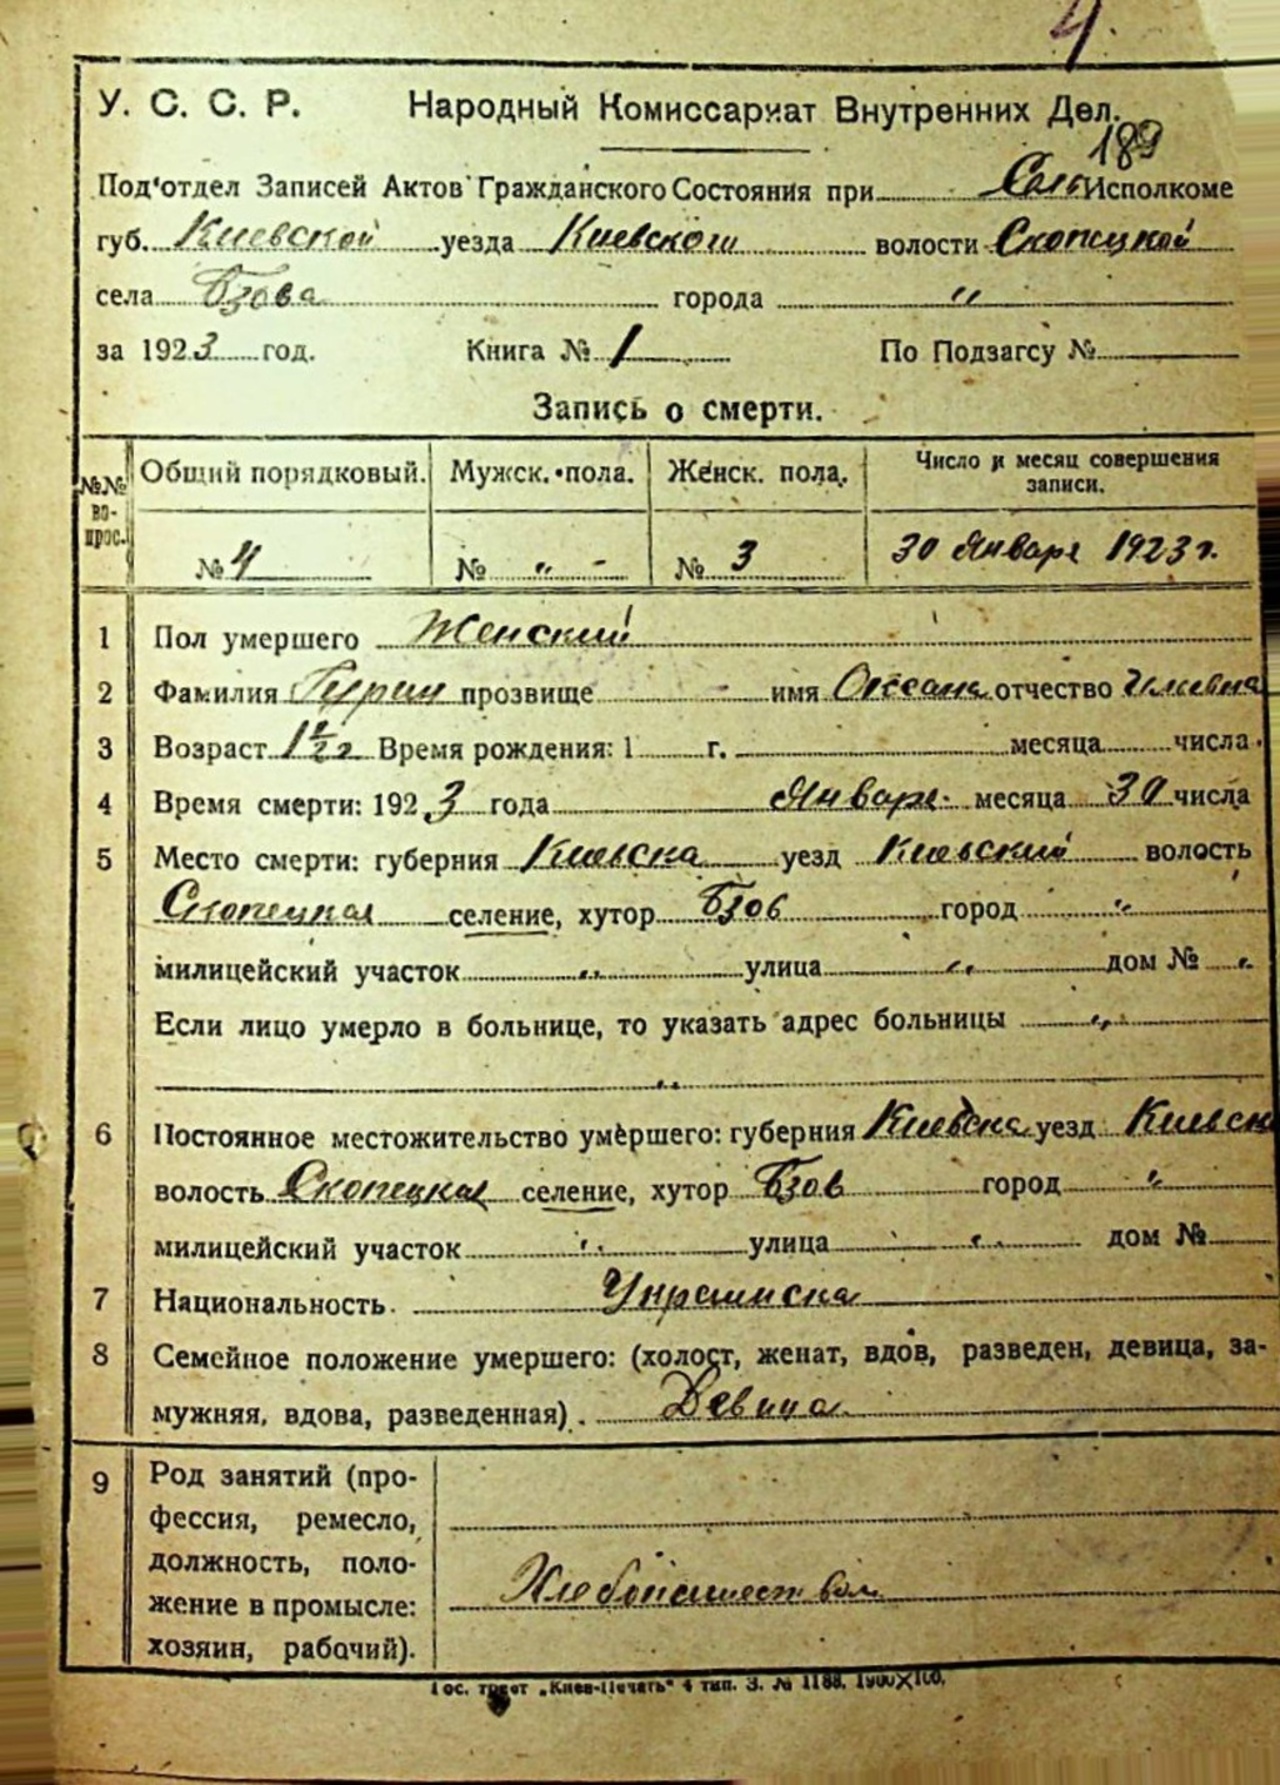 4.
У. С. С. Р. Народный Комиссариат Внутренних Дел.
189
Под'отдел Записей Актов Гражданского Состояния при Сель Исполкоме
губ. Киевской уезда Киевского волости Скопецкой
села Бзова города "
за 1923 год. Книга № 1 По Подзагсу №
Запись о смерти.
№№ во-прос. Общий порядковый. Мужск. пола. Женск. пола. Число и месяц совершения записи.
№ 4 № " - № 3 30 Января 1923 г.
1 Пол умершего Женский
2 Фамилия Гурин прозвище - имя Оксана отчество
3 Возраст 1½ г Время рождения: 1 г. месяца числа.
4 Время смерти: 1923 года Января месяца 30 числа
5 Место смерти: губерния Киевска уезд Киевский волость
Скопецкая селение, хутор Бзов город "
милицейский участок " улица " дом № "
Если лицо умерло в больнице, то указать адрес больницы "
"
6 Постоянное местожительство умершего: губерния Киевска уезд Киевск
волость Скопецкая селение, хутор Бзов город "
милицейский участок " улица " дом №
7 Национальность. Украинска
8 Семейное положение умершего: (холост, женат, вдов, разведен, девица, за-
мужняя, вдова, разведенная). Девица
9 Род занятий (про-
фессия, ремесло,
должность, поло-
жение в промысле: Хлебопашеством
хозяин, рабочий).
Гос. трест „Киев-Печать" 4 тип. З. № 1188. 1900Х100.